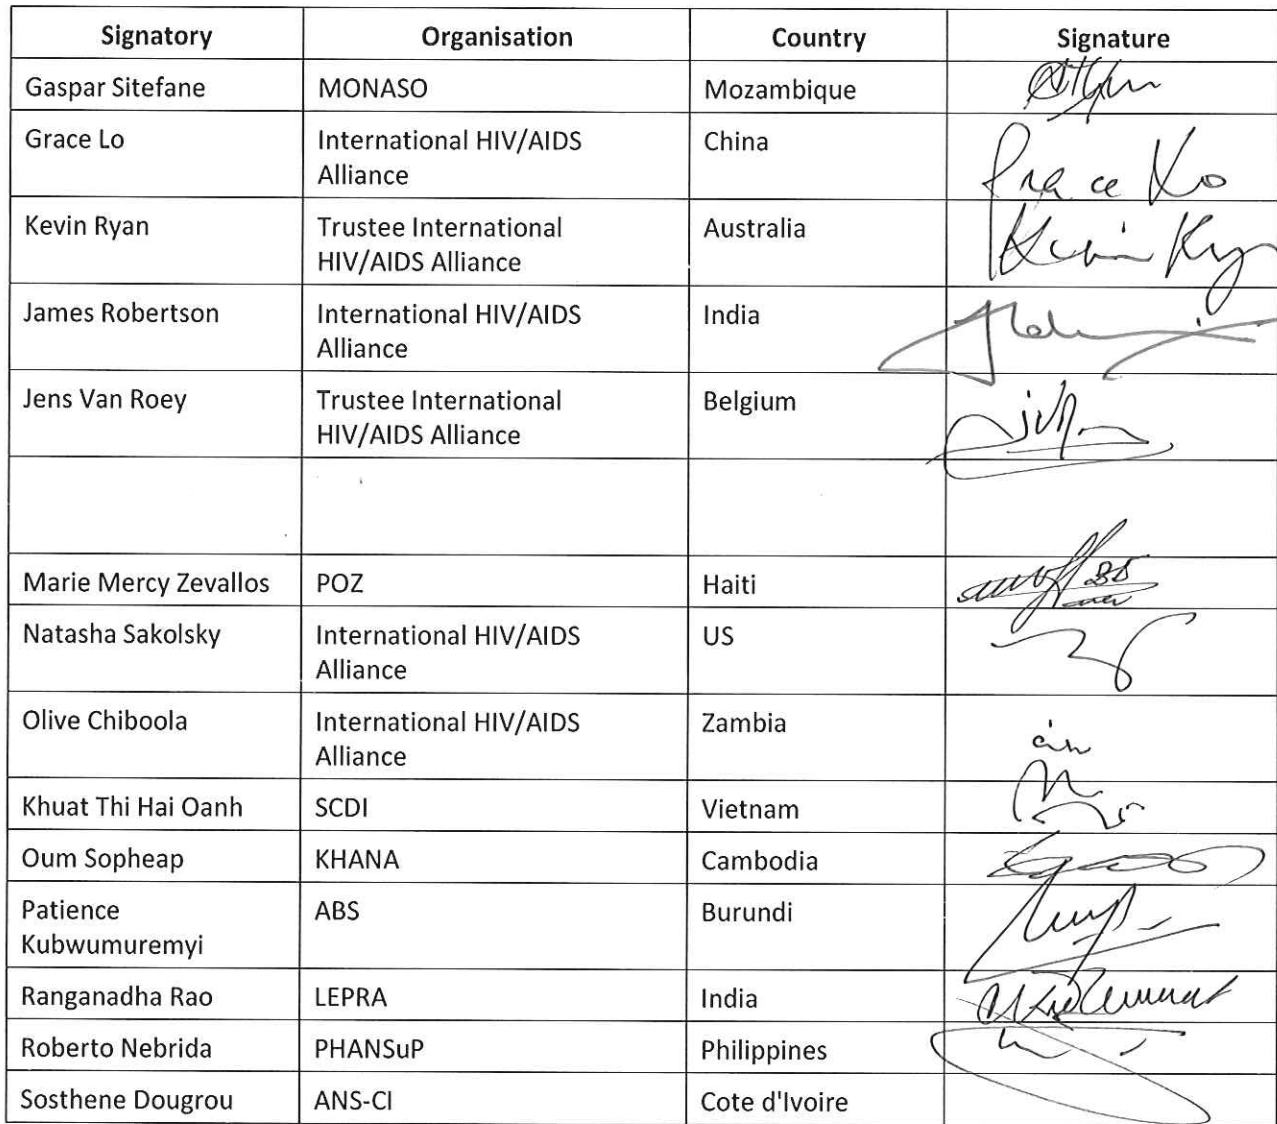 Signatory Organisation Country Signature
Gaspar Sitefane MONASO Mozambique
Grace Lo International HIV/AIDS China
Alliance
Grace Lo
Kevin Ryan Trustee International Australia
HIV/AIDS Alliance
Kevin Ry
James Robertson International HIV/AIDS India
Alliance
Jens Van Roey Trustee International Belgium
HIV/AIDS Alliance
Marie Mercy Zevallos POZ Haiti
Natasha Sakolsky International HIV/AIDS US
Alliance
Olive Chiboola International HIV/AIDS Zambia
Alliance
Khuat Thi Hai Oanh SCDI Vietnam
Oum Sopheap KHANA Cambodia
Patience ABS Burundi
Kubwumuremyi
Ranganadha Rao LEPRA India
Roberto Nebrida PHANSuP Philippines
Sosthene Dougrou ANS-CI Cote d'Ivoire